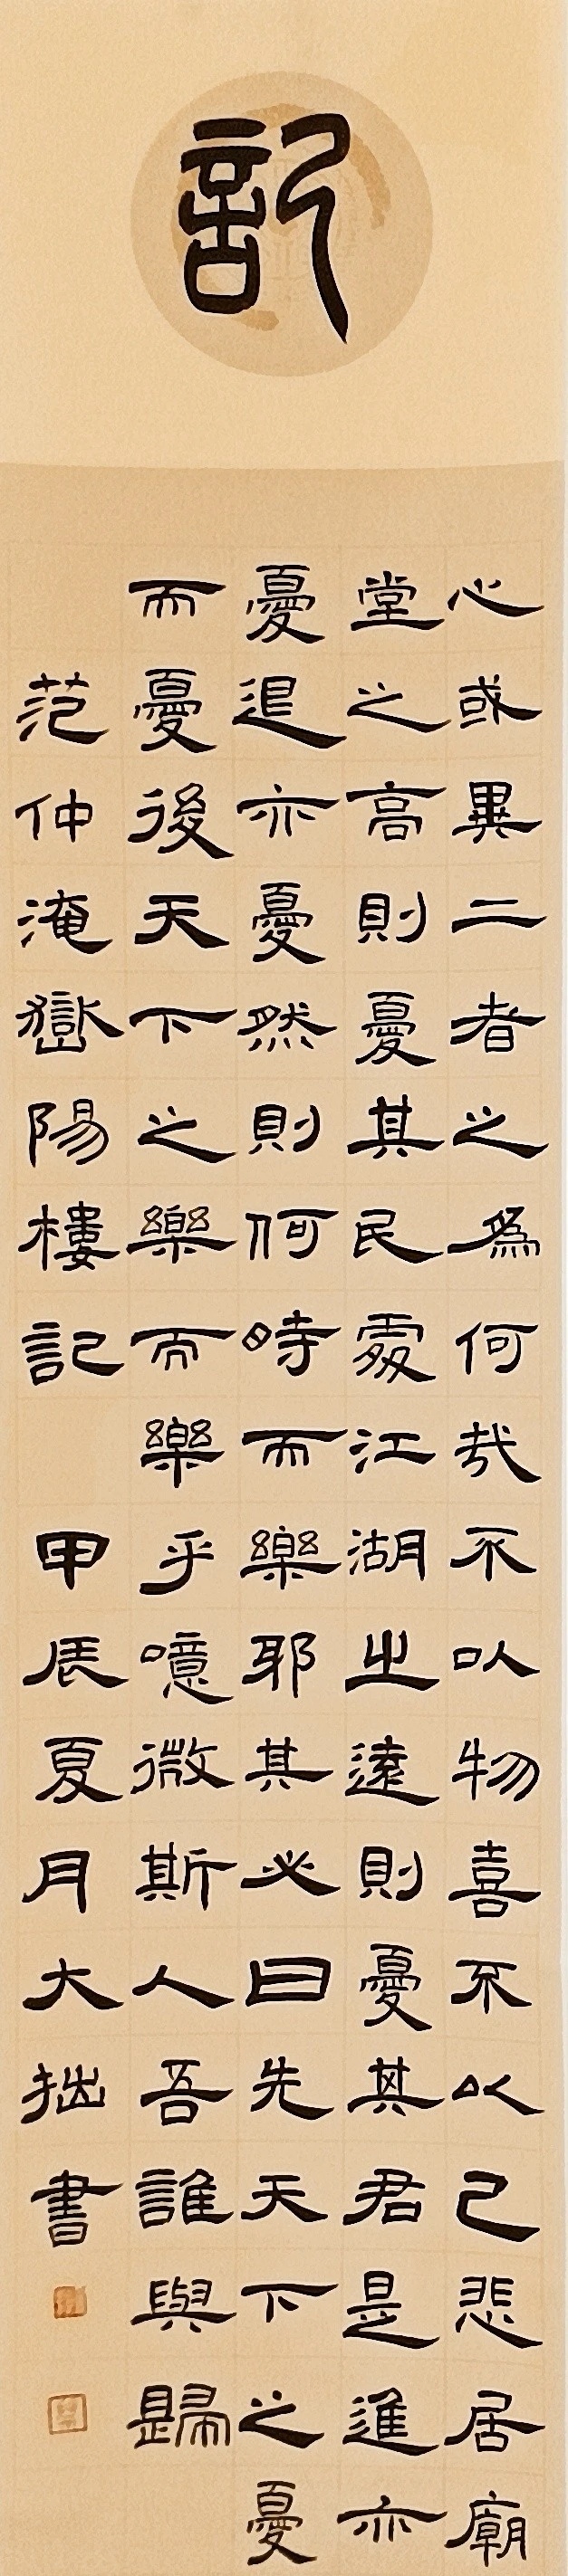 記
心或異二者之為何哉不以物喜不以己悲居廟
堂之高則憂其民處江湖之遠則憂其君是進亦
憂退亦憂然則何時而樂耶其必曰先天下之憂
而憂後天下之樂而樂乎噫微斯人吾誰與歸
范仲淹嶽陽樓記 甲辰夏月大拙書